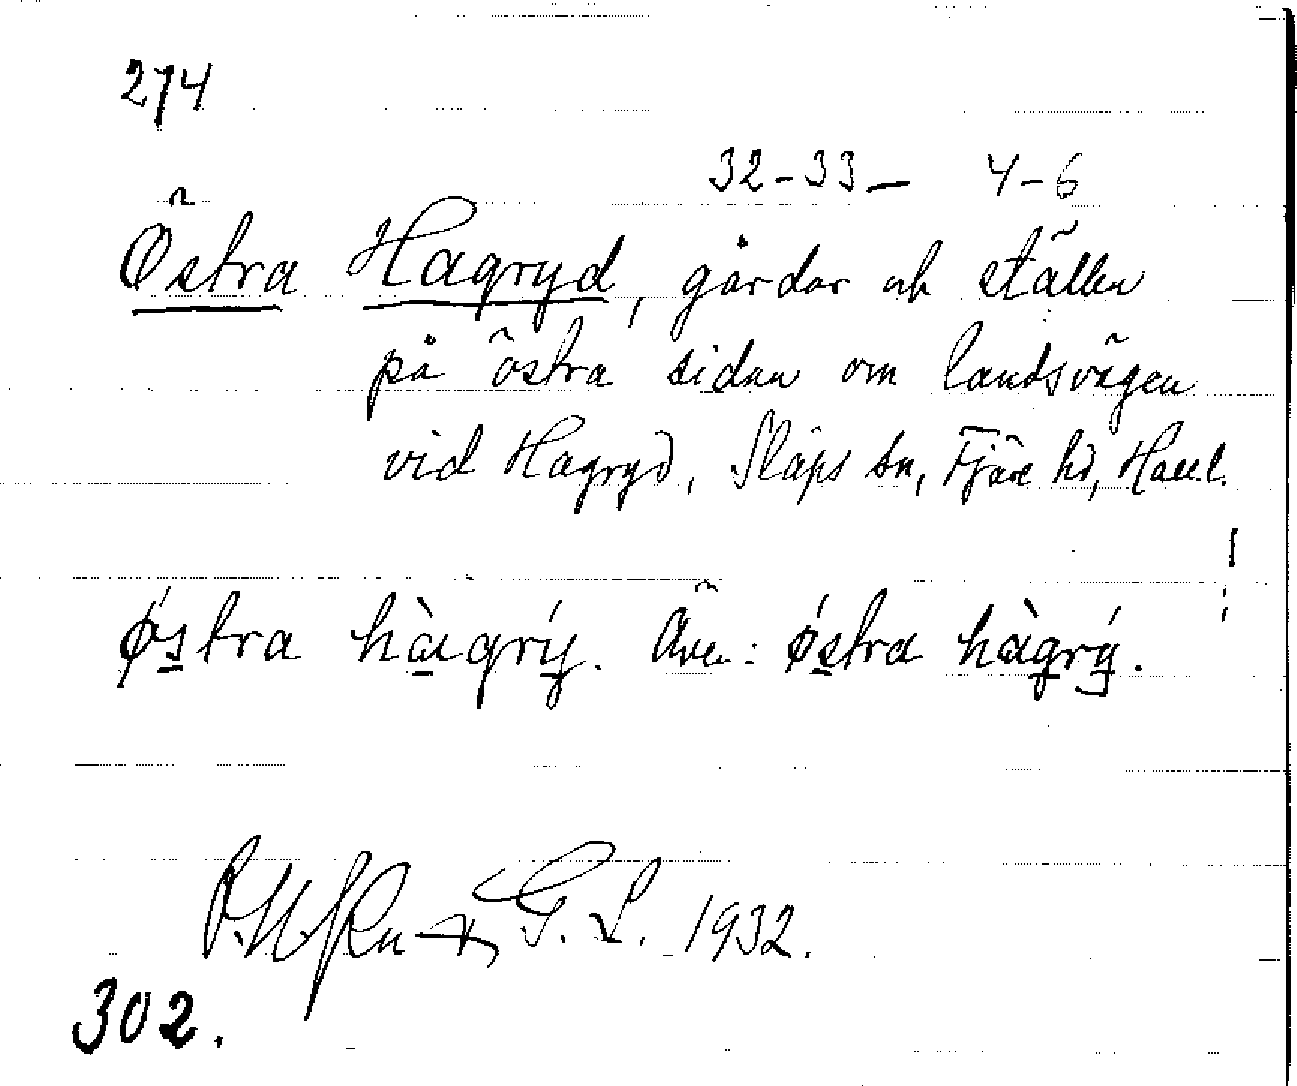 274
32-33- 4-6
Östra Hagryd, gårdar och ställen
på östra sidan om landsvägen
vid Hagryd, Släps sn, Fjäre hd, Hall.
østra hàgrý. Även: østra hàgrý.
G. L. 1932.
302.